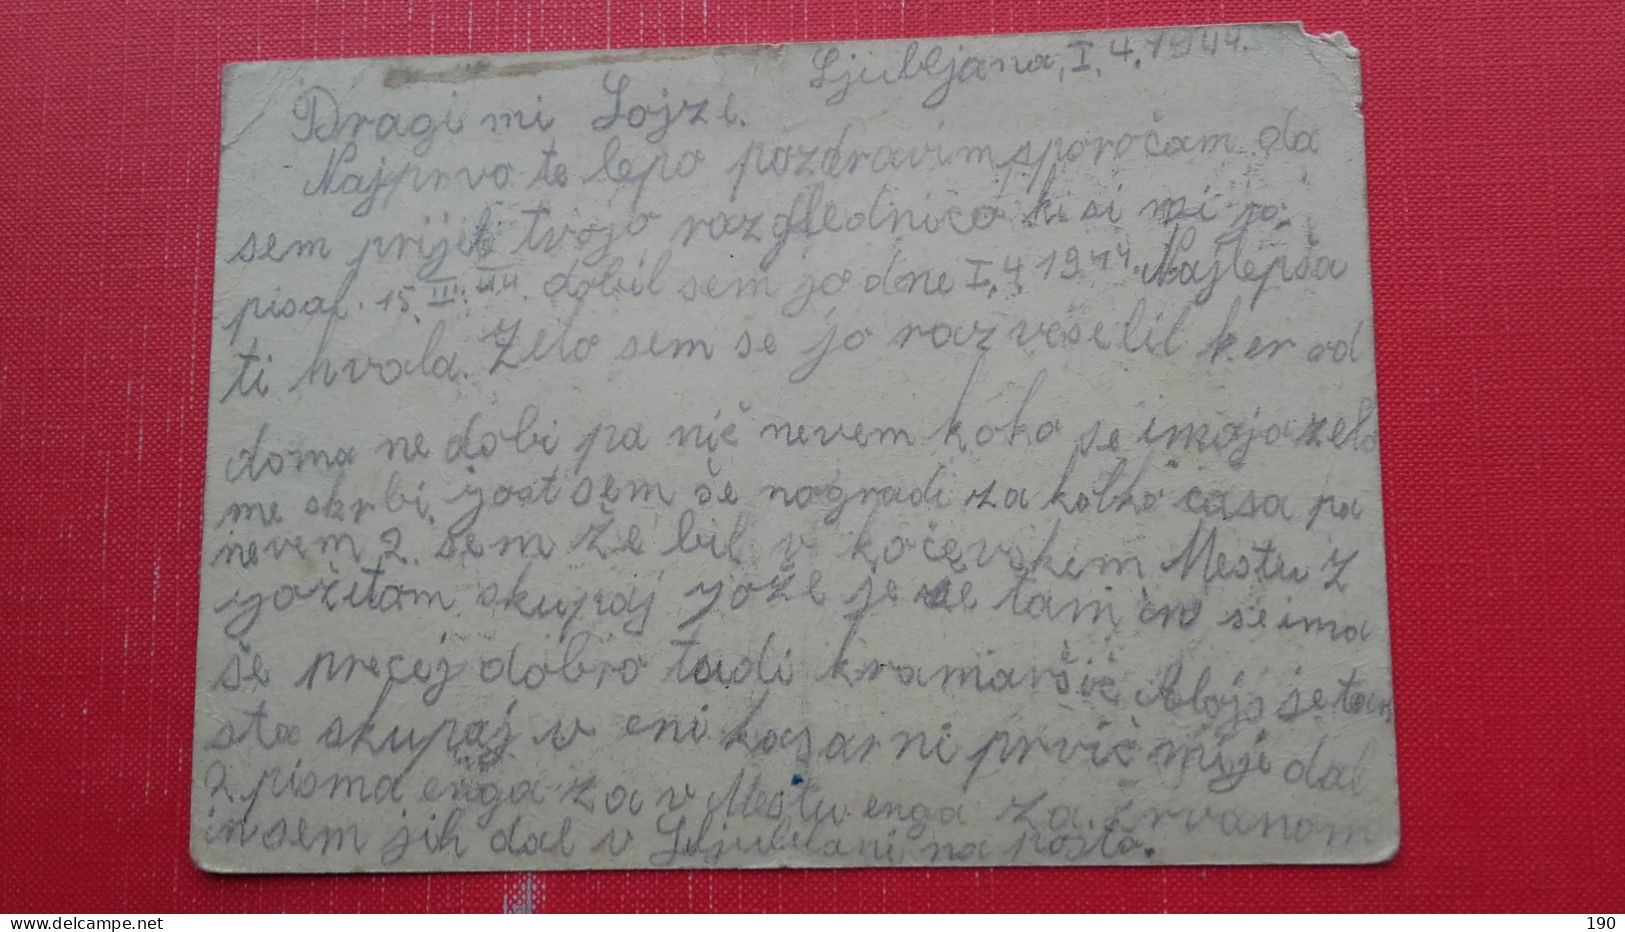 Ljubljana, I. 4. 1944.
Dragi mi Lojze.
Najprvo te lepo pozdravim sporočam da
sem prijel tvojo razglednico ki si mi jo
pisal. 15. III. 44. dobil sem jo dne I. 4. 1944. Najlepša
ti hvala. Zelo sem se jo razveselil ker od
doma ne dobi pa nič nevem koko se imajo zelo
me skrbi. jast sem še nogradi za kolko časa pa
nevem 2. sem že bil v kočevskem Mestu z
skupaj jože je tam on se ima
še precej dobro tudi kramaršič Alojz je tam
sta skupaj v eni kasarni prvič mi je dal
2 pisma enga za v Mestu enga za
in sem jih dal v Ljubljani na pošto.
delcampe.net
190